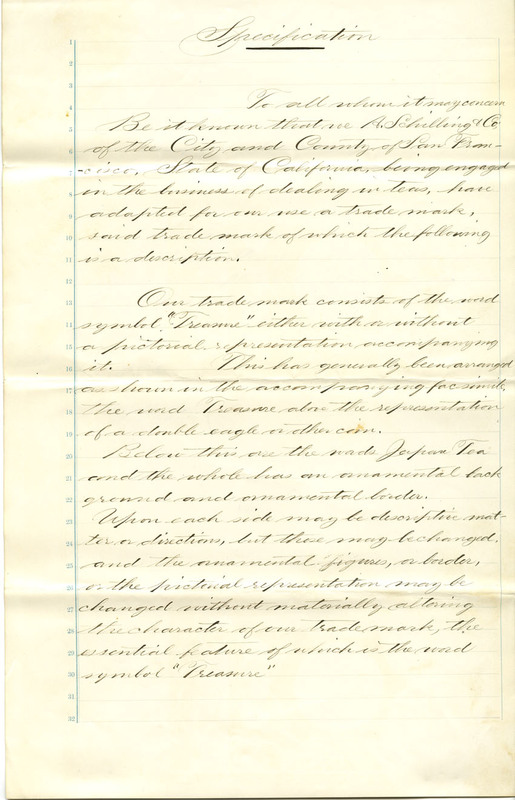 Specification
1
2
3
4 To all whom it may concern
5 Be it known that we A. Schilling & Co
6 of the City and County of San Fran-
7 -cisco, State of California, being engaged
8 in the business of dealing in teas, have
9 adapted for our use a trade mark,
10 said trade mark of which the following
11 is a description.
12
13 Our trade mark consists of the word
14 symbol "Treasure" either with or without
15 a pictorial representation accompanying
16 it. This has generally been arranged
17 as shown in the accompanying facsimile,
18 the word Treasure above the representation
19 of a double eagle or other coin.
20 Below this are the words Japan Tea
21 and the whole has an ornamental back
22 ground and ornamental border.
23 Upon each side may be descriptive mat-
24 ter or directions, but these may be changed,
25 and the ornamental figures, or border,
26 or the pictorial representation may be
27 changed without materially altering
28 the character of our trade mark, the
29 essential feature of which is the word
30 symbol "Treasure"
31
32